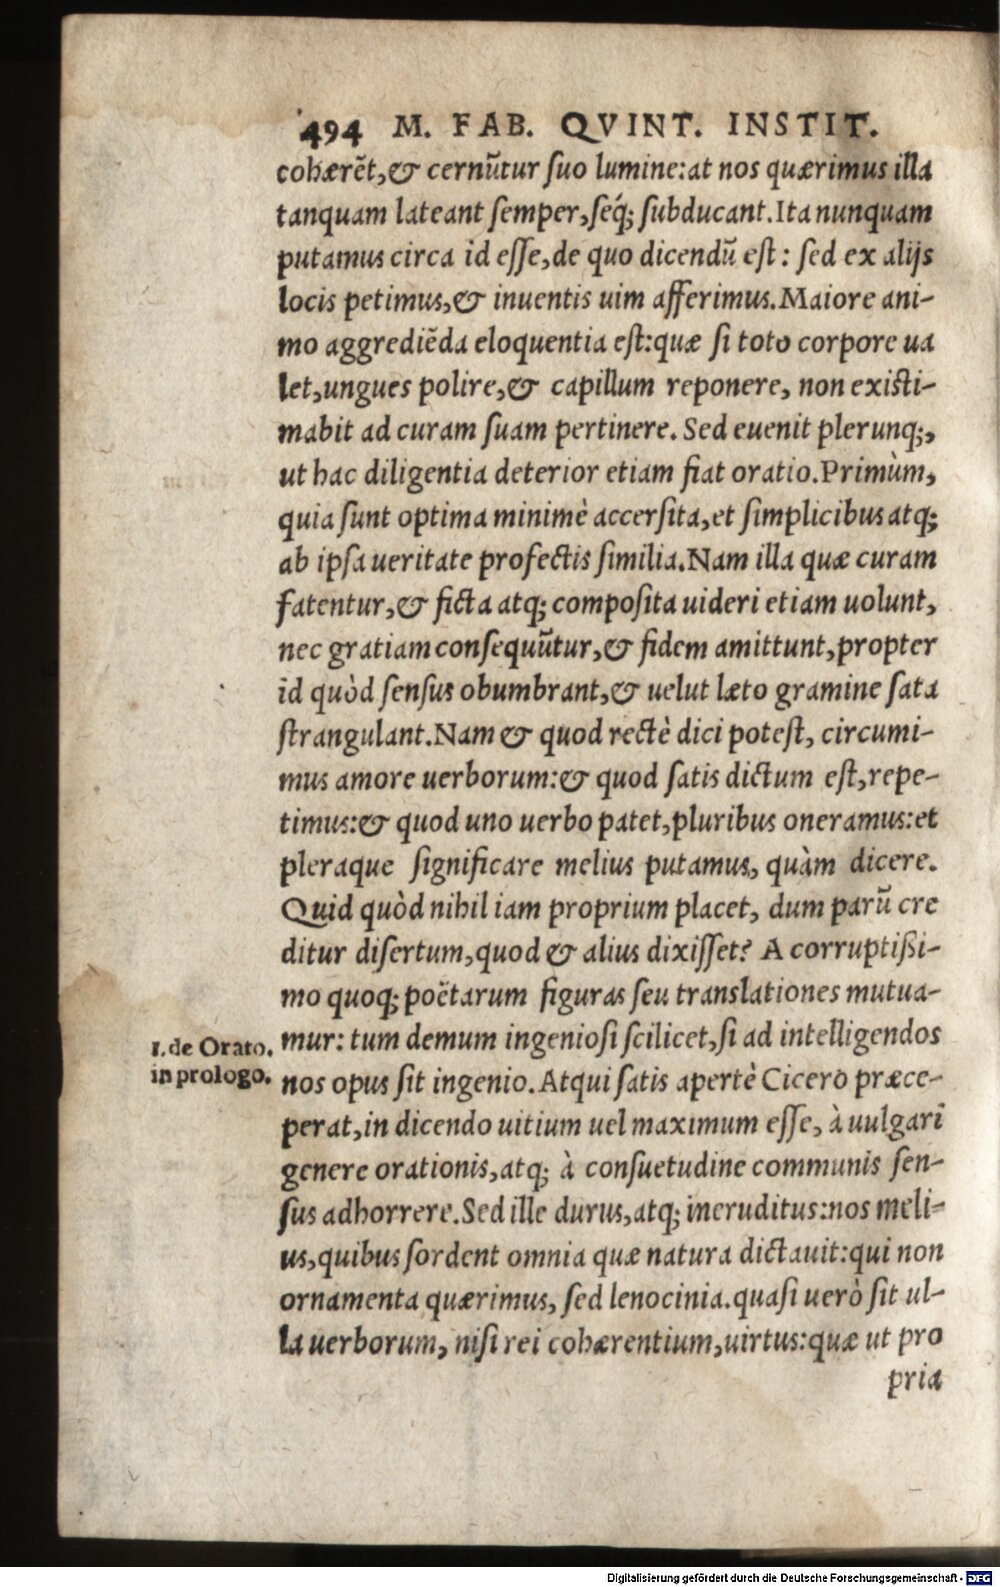 494 M. FAB. QVINT. INSTIT.
cohærēt,& cernūtur ſuo lumine:at nos quærimus illa
tanquam lateant ſemper,ſéq; ſubducant.Ita nunquam
putamus circa id eſſe,de quo dicendū eſt: ſed ex alijs
locis petimus,& inuentis uim afferimus.Maiore ani-
mo aggrediēda eloquentia eſt:quæ ſi toto corpore ua
let,ungues polire,& capillum reponere, non exiſti-
mabit ad curam ſuam pertinere. Sed euenit plerunq;,
ut hac diligentia deterior etiam fiat oratio.Primùm,
quia ſunt optima minimè accerſita,et ſimplicibus atq;
ab ipſa ueritate profectis ſimilia.Nam illa quæ curam
fatentur,& ficta atq; compoſita uideri etiam uolunt,
nec gratiam conſequūtur,& fidem amittunt,propter
id quòd ſenſus obumbrant,& uelut læto gramine ſata
ſtrangulant.Nam & quod rectè dici poteſt, circumi-
mus amore uerborum:& quod ſatis dictum eſt,repe-
timus:& quod uno uerbo patet,pluribus oneramus:et
pleraque ſignificare melius putamus, quàm dicere.
Quid quòd nihil iam proprium placet, dum parū cre
ditur diſertum,quod & alius dixiſſet? A corruptißi-
mo quoq; poëtarum figuras ſeu translationes mutua-
mur: tum demum ingenioſi ſcilicet,ſi ad intelligendos
1.de Orato.
in prologo.
nos opus ſit ingenio. Atqui ſatis apertè Cicero præce-
perat,in dicendo uitium uel maximum eſſe, à uulgari
genere orationis,atq; à conſuetudine communis ſen-
ſus adhorrere.Sed ille durus,atq; ineruditus:nos meli-
us,quibus ſordent omnia quæ natura dictauit:qui non
ornamenta quærimus, ſed lenocinia.quaſi uerò ſit ul-
la uerborum, niſi rei cohærentium,uirtus:quæ ut pro
pria
Digitalisierung gefördert durch die Deutsche Forschungsgemeinschaft - DFG